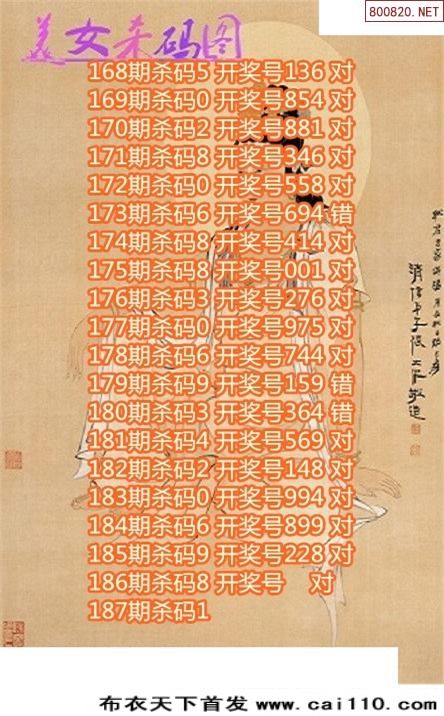 800820.NET
美女杀码图
168期杀码5 开奖号136 对
169期杀码0 开奖号854 对
170期杀码2 开奖号881 对
171期杀码8 开奖号346 对
172期杀码0 开奖号558 对
173期杀码6 开奖号694 错
174期杀码8 开奖号414 对
175期杀码8 开奖号001 对
176期杀码3 开奖号276 对
177期杀码0 开奖号975 对
178期杀码6 开奖号744 对
179期杀码9 开奖号159 错
180期杀码3 开奖号364 错
181期杀码4 开奖号569 对
182期杀码2 开奖号148 对
183期杀码0 开奖号994 对
184期杀码6 开奖号899 对
185期杀码9 开奖号228 对
186期杀码8 开奖号 对
187期杀码1
布衣天下首发 www.cai110.com